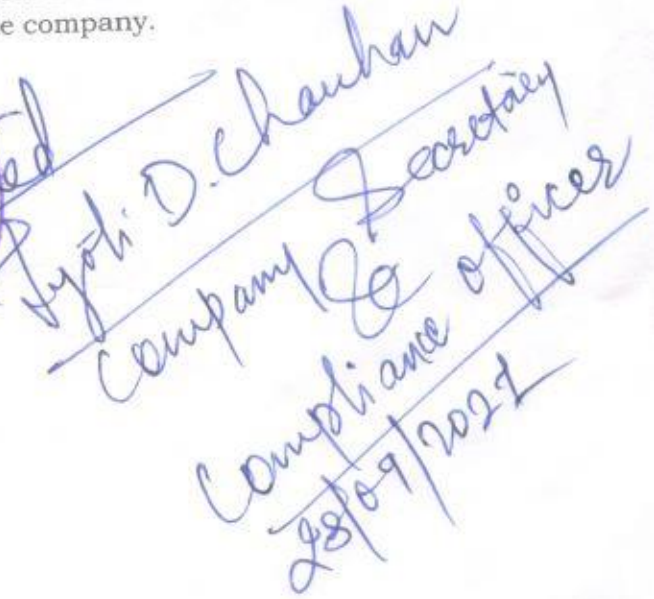 e company.
ed
Jyoti D. Chauhan
Company Secretary
&
Compliance officer
28/09/2021